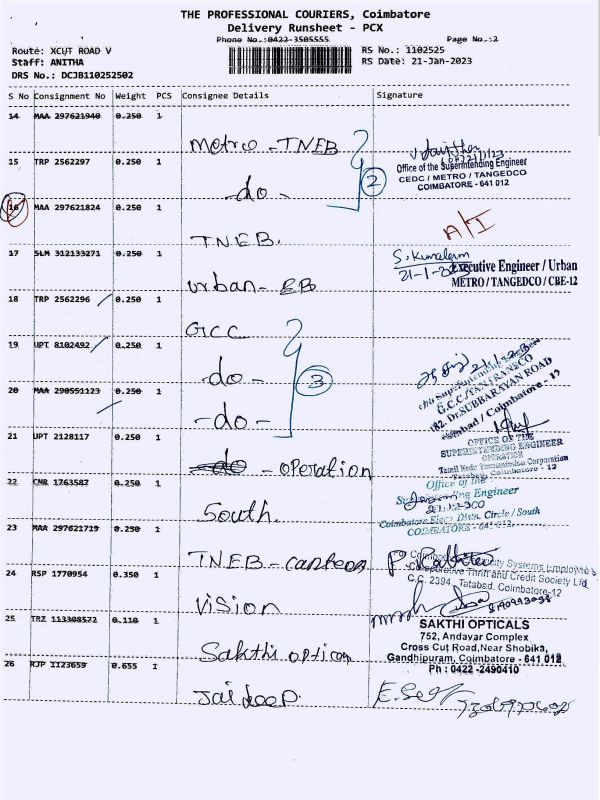 THE PROFESSIONAL COURIERS, Coimbatore
Delivery Runsheet - PCX
Phone No.:0422-3505555
Page No.:2
Route: XCUT ROAD V
RS No.: 1102525
Staff: ANITHA
RS Date: 21-Jan-2023
DRS No.: DCJB110252502
S No Consignment No Weight PCS Consignee Details Signature
14 MAA 297621940 0.250 1
Metro - TNEB
15 TRP 2562297 0.250 1
Office of the Superintending Engineer
CEDC / METRO / TANGEDCO
COIMBATORE - 641 012
-do-
2
16 MAA 297621824 0.250 1
A/I
TNEB.
17 SLM 312133271 0.250 1
S. Kumalern
21-1-
Executive Engineer / Urban
METRO / TANGEDCO / CBE-12
Urban - EB
18 TRP 2562296 0.250 1
GCC
19 UPT 8102492 0.250 1
-do-
3
G.C.C / TANTRANSCO
182, Dr.SUBBARAYAN ROAD
Coimbatore - 12
20 MAA 290551123 0.250 1
-do-
21 UPT 2128117 0.250 1
OFFICE OF THE
SUPERINTENDING ENGINEER
OPERATION
Tamil Nadu Transmission Corporation
Tatabad, Coimbatore - 12
do - operation
22 CNR 1763587 0.250 1
Office of the
Superintending Engineer
Coimbatore Elec. Distn. Circle / South
COIMBATORE - 641 012.
South.
23 MAA 297621719 0.250 1
TNEB - canteen
Electricity Systems Employees
Co-operative Thrift and Credit Society Ltd
C.C. 2394, Tatabad, Coimbatore-12
24 RSP 1770954 0.350 1
Vision
25 TRZ 113308572 0.110 1
SAKTHI OPTICALS
752, Andavar Complex
Cross Cut Road, Near Shobika,
Gandhipuram, Coimbatore - 641 012
Ph : 0422 -2490410
Sakthi optical
26 RJP 1123659 0.655 1
Jaideep.